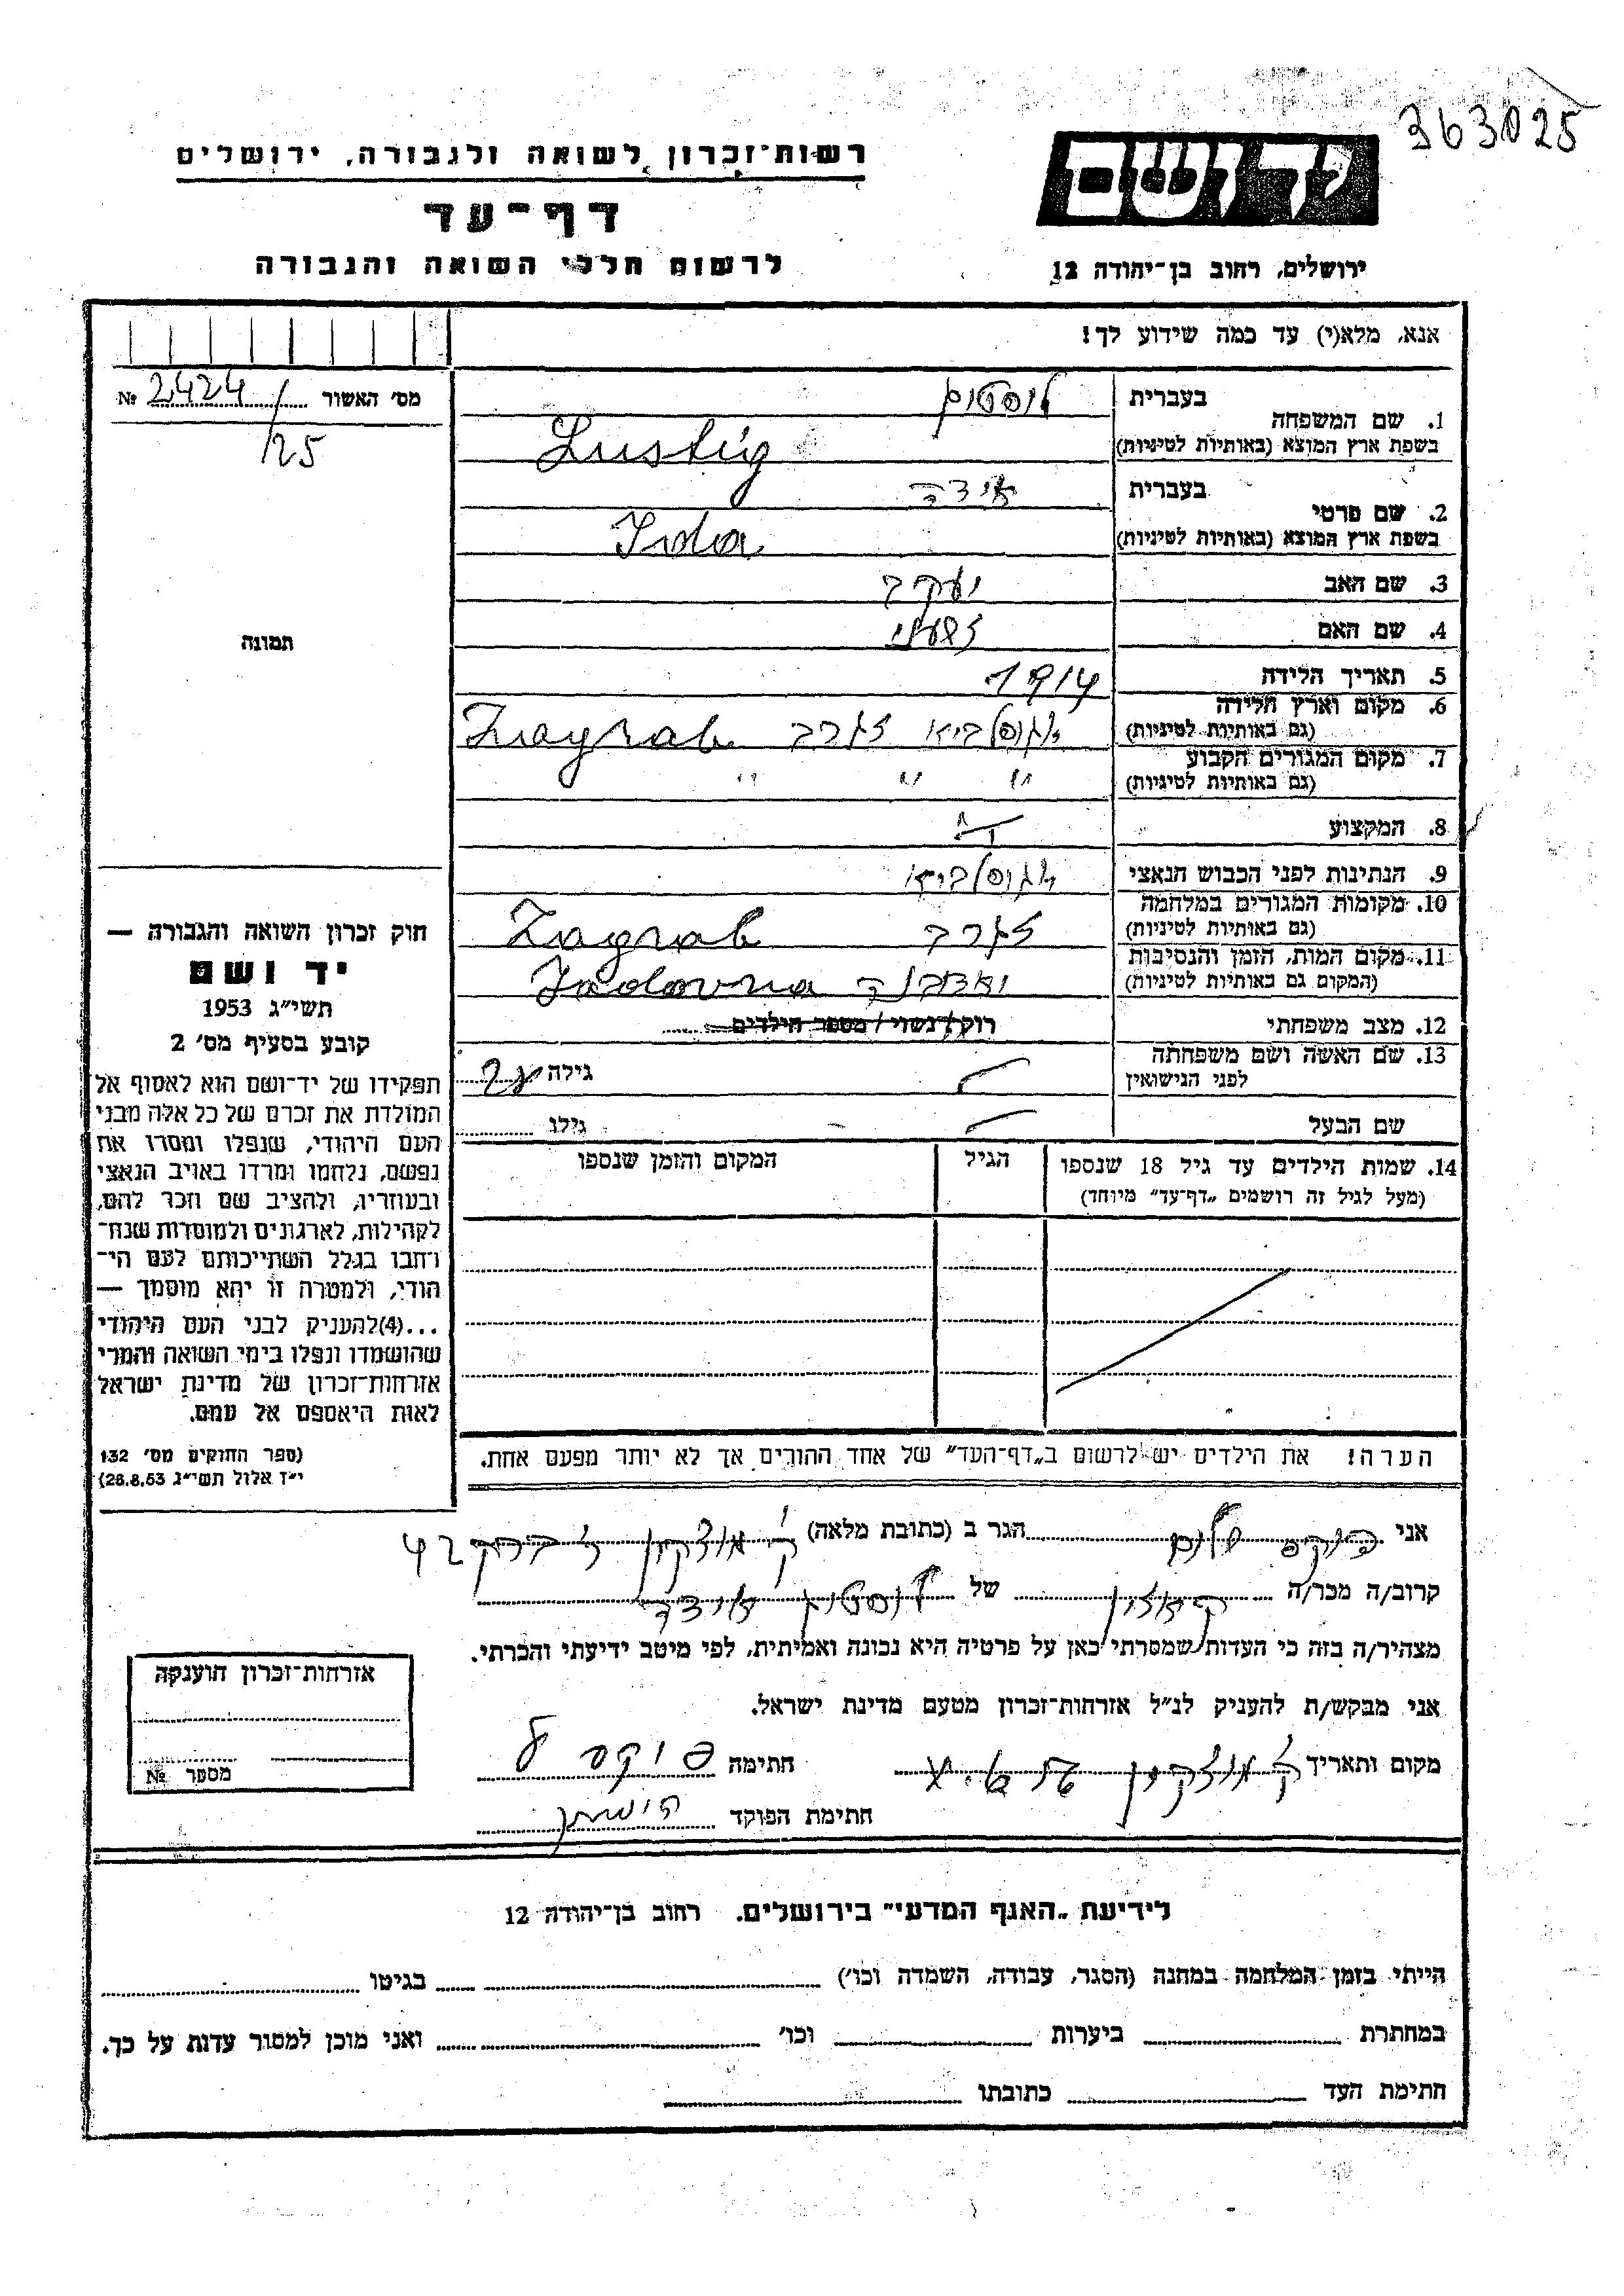 363025
רשות־זכרון לשואה ולגבורה, ירושלים
יד ושם
דף־עד
לרשום חללי השואה והגבורה
ירושלים, רחוב בן־יהודה 12
אנא, מלא(י) עד כמה שידוע לך!
מס' האשור № 2424/
125
1. שם המשפחה
בעברית
בשפת ארץ המוצא (באותיות לטיניות) Lustig
2. שם פרטי
בעברית אידה
בשפת ארץ המוצא (באותיות לטיניות) Ida
3. שם האב יעקב
4. שם האם
5. תאריך הלידה 1914
6. מקום וארץ הלידה (גם באותיות לטיניות) זגרב Zagrab
7. מקום המגורים הקבוע (גם באותיות לטיניות) " " "
8. המקצוע
9. הנתינות לפני הכבוש הנאצי
10. מקומות המגורים במלחמה (גם באותיות לטיניות) זגרב Zagrab
11. מקום המות, הזמן והנסיבות (המקום גם באותיות לטיניות) Jadovna
12. מצב משפחתי רוק/נשוי/מספר הילדים
13. שם האשה ושם משפחתה לפני הנישואין
גילה
שם הבעל
גילו
14. שמות הילדים עד גיל 18 שנספו (מעל לגיל זה רושמים „דף־עד" מיוחד)
הגיל
המקום והזמן שנספו
תמונה
חוק זכרון השואה והגבורה —
יד ושם
תשי"ג 1953
קובע בסעיף מס' 2
תפקידו של יד־ושם הוא לאסוף אל
המולדת את זכרם של כל אלה מבני
העם היהודי, שנפלו ומסרו את
נפשם, נלחמו ומרדו באויב הנאצי
ובעוזריו, ולהציב שם וזכר להם,
לקהילות, לארגונים ולמוסדות שנח־
רחבו בגלל השתייכותם לעם הי־
הודי, ולמטרה זו יהא מוסמך —
...(4)להעניק לבני העם היהודי
שהושמדו ונפלו בימי השואה והמרי
אזרחות־זכרון של מדינת ישראל
לאות היאספם אל עמם.
(ספר החוקים מס' 132
י"ז אלול תשי"ג 28.8.53)
הערה! את הילדים יש לרשום ב„דף־העד" של אחד ההורים אך לא יותר מפעם אחת.
אני פוקס שלום הגר ב (כתובת מלאה) ק' מוצקין 42
קרוב/ה מכר/ה של
מצהיר/ה בזה כי העדות שמסרתי כאן על פרטיה היא נכונה ואמיתית, לפי מיטב ידיעתי והכרתי.
אני מבקש/ת להעניק לנ"ל אזרחות־זכרון מטעם מדינת ישראל.
מקום ותאריך ק' מוצקין חתימה פוקס ש
חתימת הפוקד
אזרחות־זכרון הוענקה
מספר №
לידיעת „האגף המדעי" בירושלים. רחוב בן־יהודה 12
הייתי בזמן המלחמה במחנה (הסגר, עבודה, השמדה וכו') בגיטו
במחתרת ביערות וכו' ואני מוכן למסור עדות על כך.
חתימת העד כתובתו